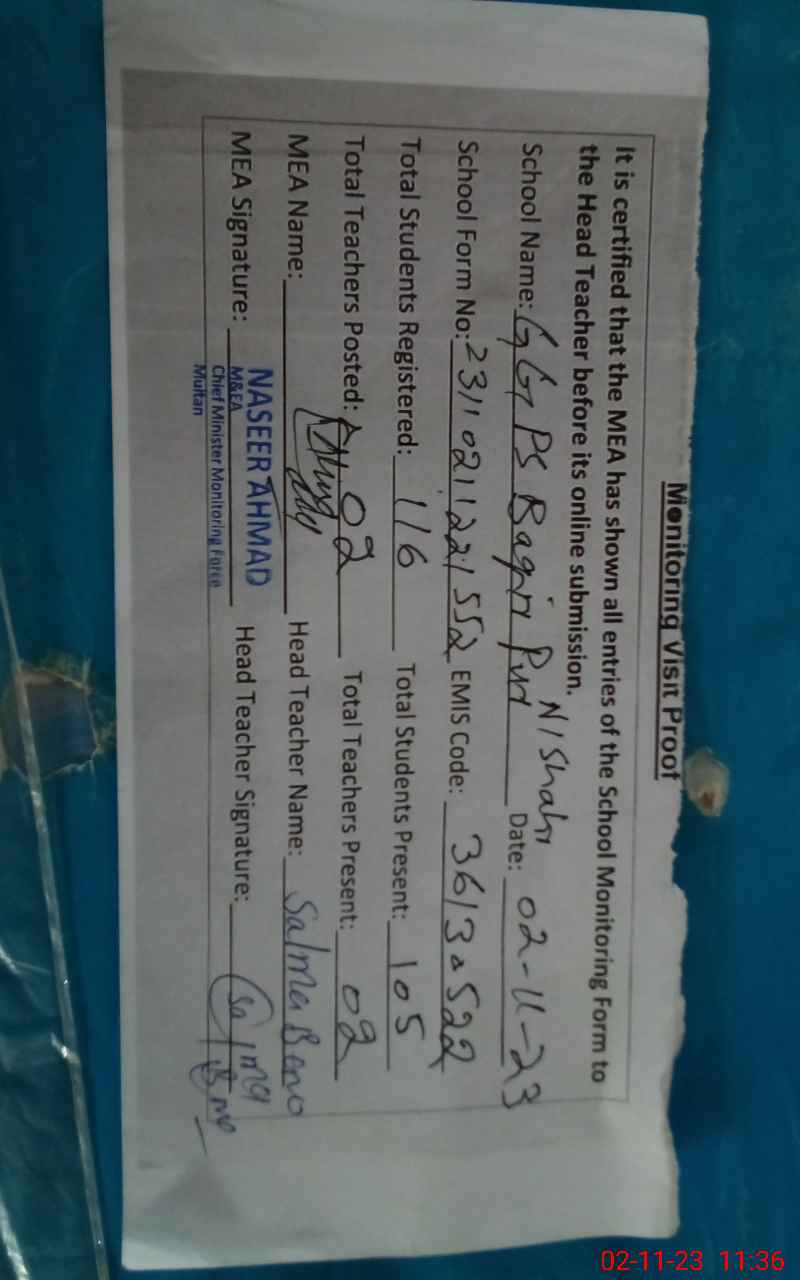 Monitoring Visit Proof
It is certified that the MEA has shown all entries of the School Monitoring Form to
the Head Teacher before its online submission.
School Name: GGPS Bagir Pur N/Shah Date: 02-11-23
School Form No: 23110211221552 EMIS Code: 36130522
Total Students Registered: 116 Total Students Present: 105
Total Teachers Posted: 02 Total Teachers Present: 02
MEA Name: Head Teacher Name: Salma Bano
MEA Signature: NASEER AHMAD Head Teacher Signature: Salma
M&EA
Chief Minister Monitoring Force
Multan
02-11-23 11:36